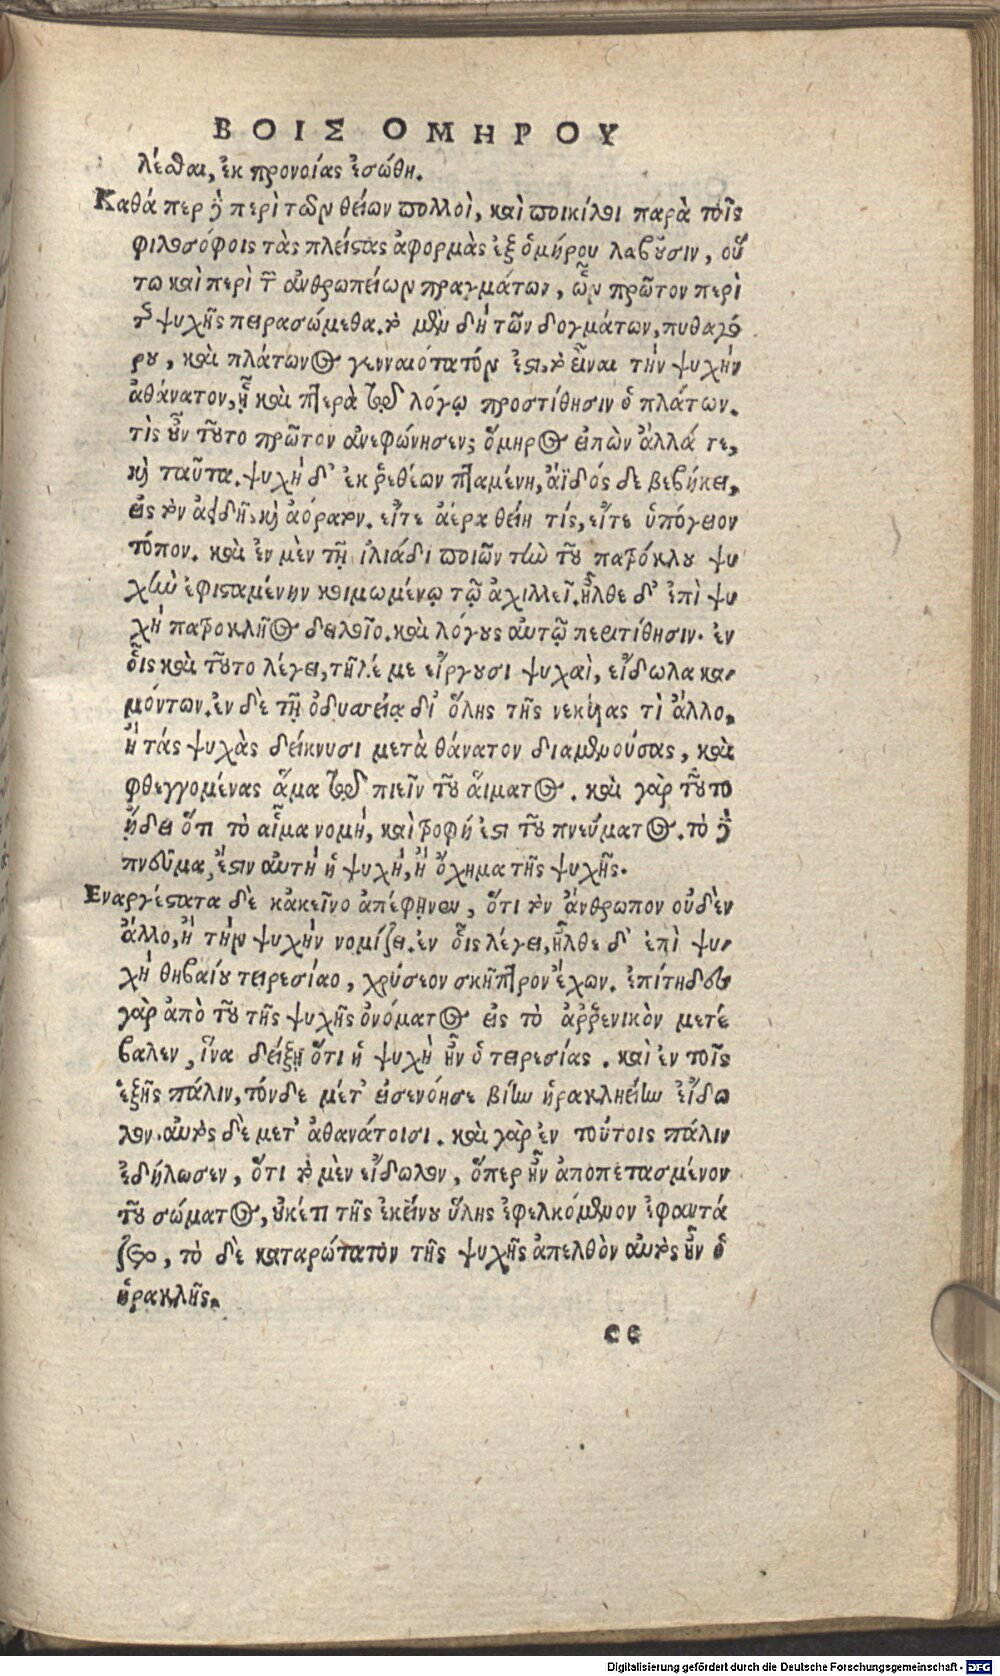 ΒΟΙΣ ΟΜΗΡΟΥ
λέσθαι, ἐκ προνοίας ἐσώθη.
Καθά περ ἢ περὶ τῶν θείων πολλοὶ, καὶ ποικίλοι παρὰ τοῖς
φιλοσόφοις τὰς πλείστας ἀφορμὰς ἐξ ὁμήρου λαβοῦσιν, οὕ
τω καὶ περὶ τῶν ἀνθρωπείων πραγμάτων, ὧν πρῶτον περὶ
τῆς ψυχῆς πειρασώμεθα. τὸ μὲν δὴ τῶν δογμάτων, πυθαγό
ρου, καὶ πλάτωνος γενναιότατόν ἐστι, τὸ εἶναι τὴν ψυχὴν
ἀθάνατον, ᾗ καὶ πτερὰ τῷ λόγῳ προστίθησιν ὁ πλάτων.
τὶς οὖν τοῦτο πρῶτον ἀνεφώνησεν; ὅμηρος εἰπὼν ἄλλά τε,
καὶ ταῦτα. ψυχὴ δ' ἐκ ῥεθέων πταμένη, ἀΐδός δε βεβήκει,
εἰς τὸν ἀϊδῆ, καὶ ἀόρατον. εἴτε ἀέρα θείη τίς, εἴτε ὑπόγειον
τόπον. καὶ ἐν μὲν τῇ ἰλιάδι ποιῶν τὴν τοῦ πατρόκλου ψυ
χὴν ἐφισταμένην κοιμωμένῳ τῷ ἀχιλλεῖ. ἦλθε δ' ἐπὶ ψυ
χὴ πατροκλῆος δειλοῖο. καὶ λόγους αὐτῷ περιτίθησιν. ἐν
οἷς καὶ τοῦτο λέγει, τῆλέ με εἴργουσι ψυχαὶ, εἴδωλα κα-
μόντων. ἐν δὲ τῇ ὀδυσσείᾳ δι' ὅλης τῆς νεκυίας τὶ ἄλλο,
ἢ τὰς ψυχὰς δείκνυσι μετὰ θάνατον διαμενούσας, καὶ
φθεγγομένας ἅμα τῷ πιεῖν τοῦ αἵματος. καὶ γὰρ τοῦτο
ᾔδει ὅτι τὸ αἷμα νομὴ, καὶ τροφή ἐστι τοῦ πνεύματος. τὸ δὲ
πνεῦμα, ἔστιν αὐτὴ ἡ ψυχὴ, ἢ ὄχημα τῆς ψυχῆς.
Ἐναργέστατα δὲ κἀκεῖνο ἀπέφηνεν, ὅτι τὸν ἄνθρωπον οὐδὲν
ἄλλο, ἢ τὴν ψυχὴν νομίζει. ἐν οἷς λέγει, ἦλθε δ' ἐπὶ ψυ-
χὴ θηβαίου τειρεσίαο, χρύσεον σκῆπτρον ἔχων. ἐπίτηδες
γὰρ ἀπὸ τοῦ τῆς ψυχῆς ὀνόματος εἰς τὸ ἀῤῥενικὸν μετέ
βαλεν, ἵνα δείξῃ ὅτι ἡ ψυχὴ ἦν ὁ τειρεσίας. καὶ ἐν τοῖς
ἑξῆς πάλιν, τόνδε μέτ' εἰσενόησε βίην ἡρακληείην εἴδω
λον. αὐτὸς δὲ μετ' ἀθανάτοισι. καὶ γὰρ ἐν τούτοις πάλιν
ἐδήλωσεν, ὅτι τὸ μὲν εἴδωλον, ὅπερ ἦν ἀποπετασμένον
τοῦ σώματος, οὐκέτι τῆς ἐκείνου ὕλης ἐφελκόμενον ἐφαντά
ζετο, τὸ δὲ καταρώτατον τῆς ψυχῆς ἀπελθὸν αὐτὸς οὖν ὁ
ἡρακλῆς.
cc
Digitalisierung gefördert durch die Deutsche Forschungsgemeinschaft - DFG